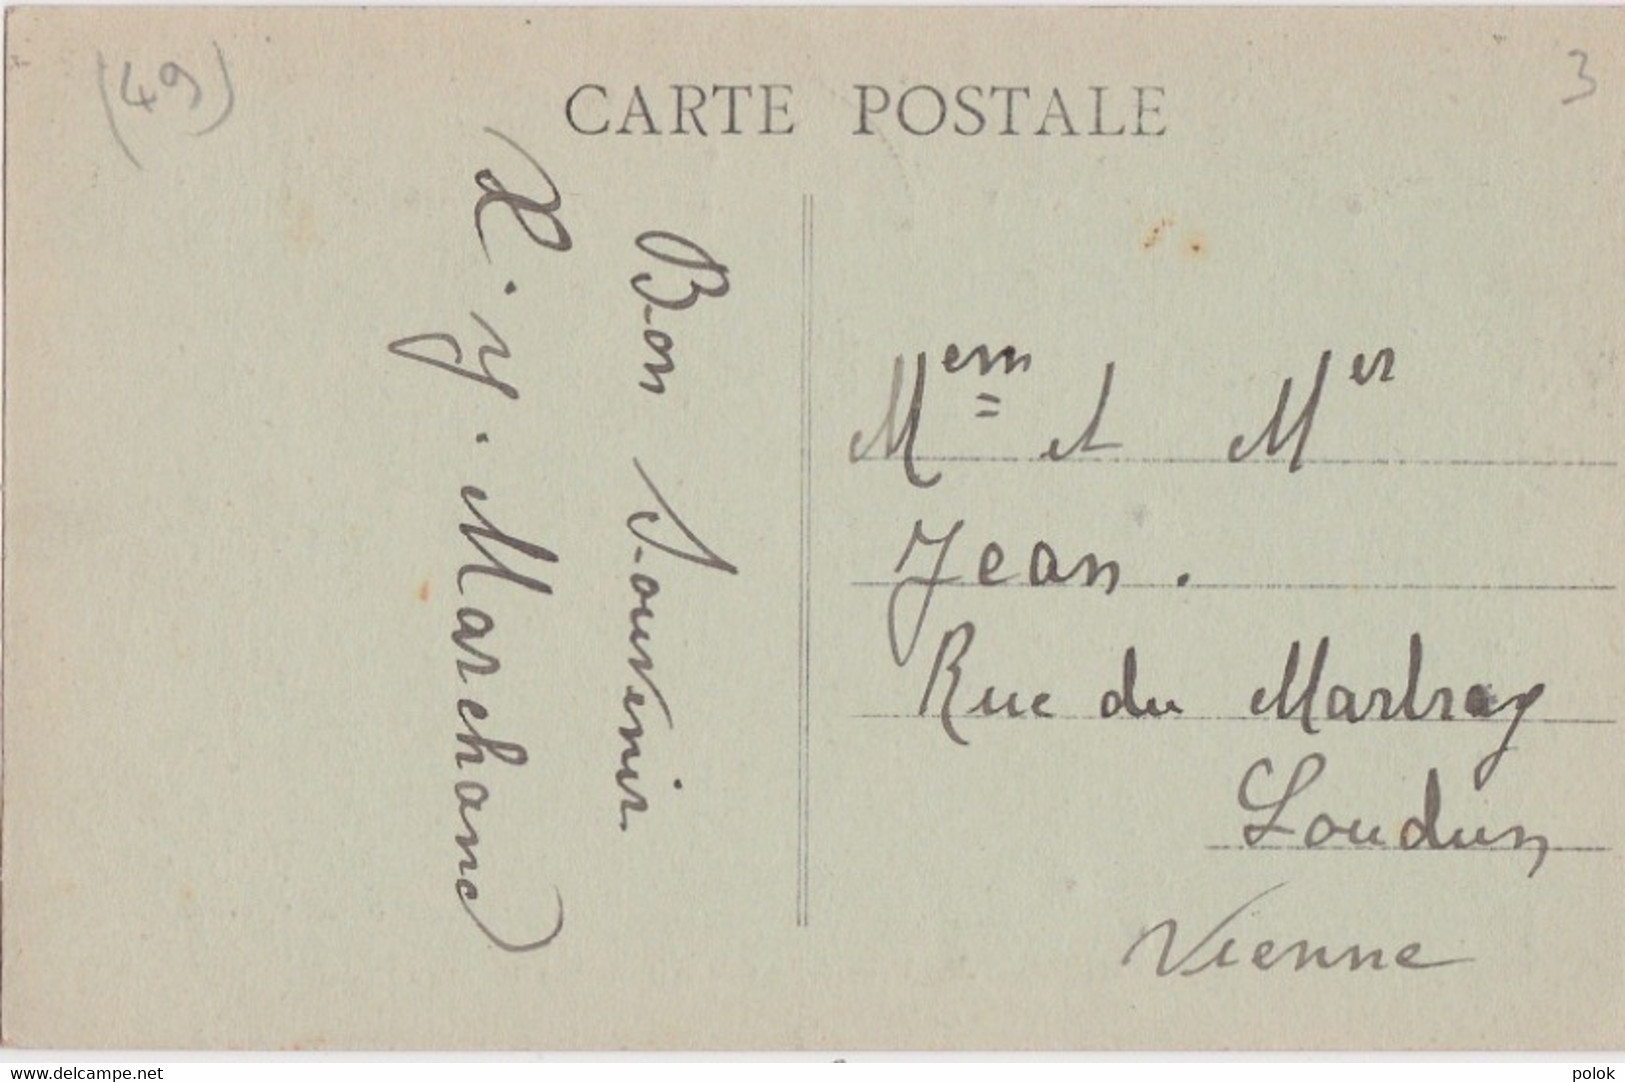 (49)
3
CARTE POSTALE
Bon Souvenir
Y. Marchand
Mem et Mer
Jean.
Rue du Martray
Loudun
Vienne
www.delcampe.net
polok